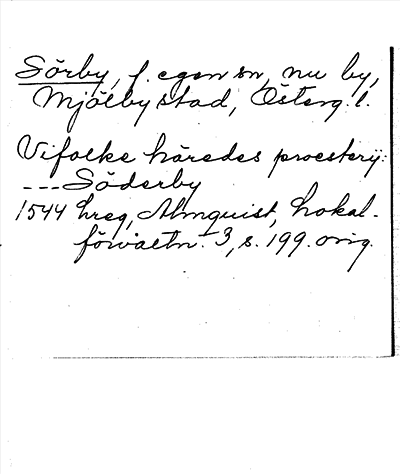 Sörby, f. egen sn, nu by,
Mjölby stad, Österg. l.
Vifolke häredes proesterij:
---Söderby
1544 hreg, Almquist, Lokal-
förvaltn. 3, s. 199. orig.